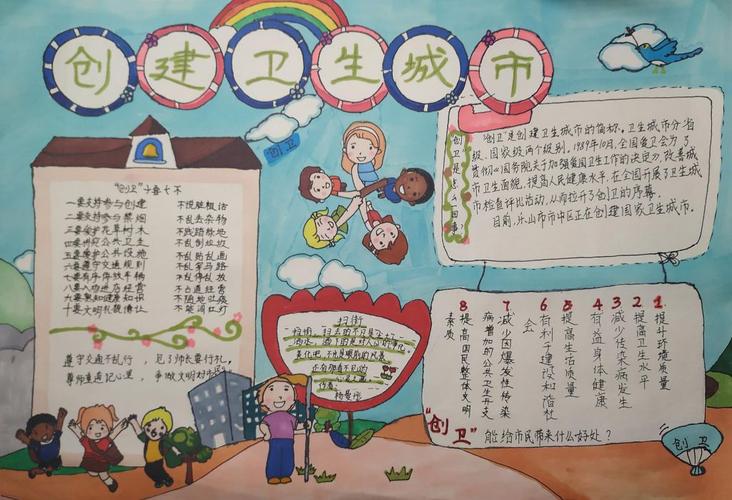 创建卫生城市
"创卫"十要十不
一要支持参与创建 不说脏粗话
二要支持参与禁烟 不乱丢杂物
三要爱护花草树木 不践踏绿地
四要讲究公共卫生 不乱倒垃圾
五要爱护公共设施 不乱贴乱画
六要遵守交通规则 不乱穿马路
七要有序停放车辆 不乱停乱放
八要入功进店经营 不占道经营
九要熟知健康知识 不随地吐痰
十要文明礼貌待人
遵守交通不乱行,见了师长要行礼。
尊师重道记心里,争做文明好市民
"创卫"
创卫是怎么回事?
"创卫"是创建卫生城市的简称。卫生城市分省
级、国家级两个级别。1989年10月,全国爱卫会为了
贯彻《国务院关于加强爱国卫生工作的决定》,改善城
市卫生面貌,提高人民健康水平,在全国开展了卫生城
市检查评比活动,从而拉开了创卫的序幕。
目前,乐山市市中区正在创建国家卫生城市。
扫街
杨曼彤
1.提升环境质量
2提高卫生水平
3减少传染病发生
4有益身体健康
5提高生活质量
6有利于建设和谐社
会
7减少因爆发性传染
病增加的公共卫生开支
8提高国民整体文明
素质
"创卫"能给市民带来什么好处?
创卫